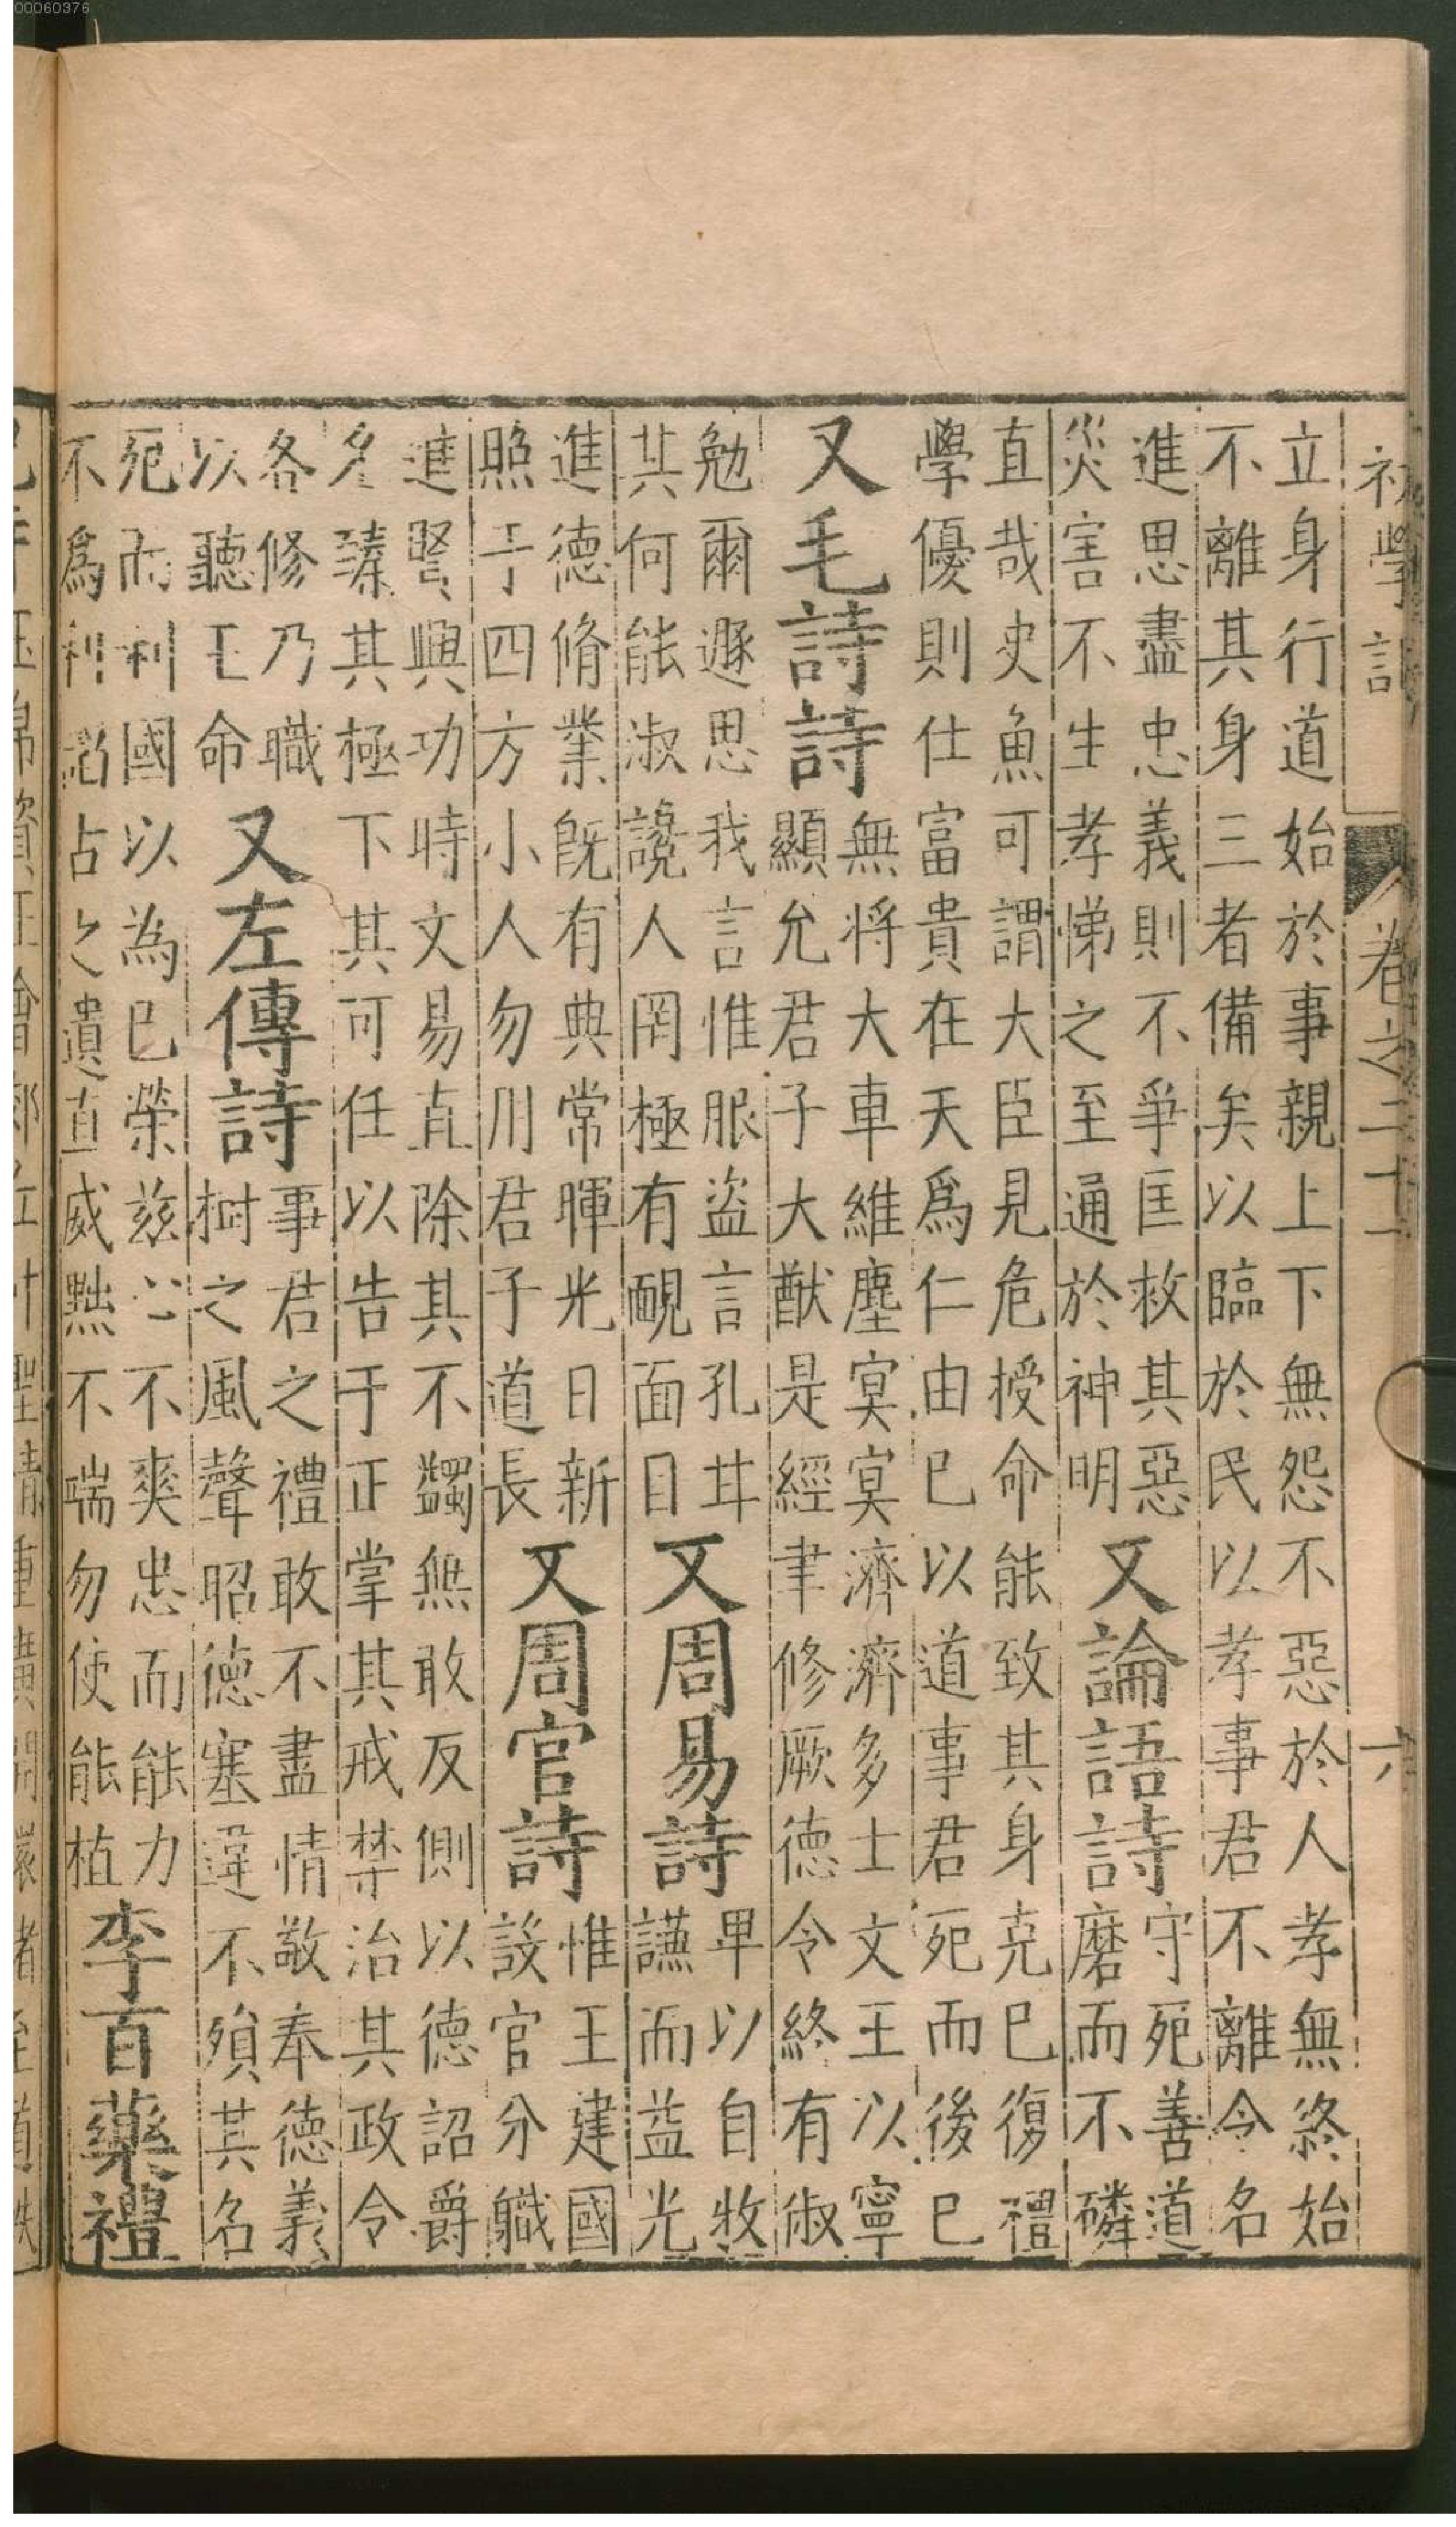 初學記 卷之二十一 六
立身行道始於事親上下無怨不惡於人孝無終始
不離其身三者備矣以臨於民以孝事君不離令名
進思盡忠義則不爭匡救其惡
災害不生孝悌之至通於神明
又論語詩
守死善道
磨而不磷
直哉史魚可謂大臣見危授命能致其身克已復禮
學優則仕富貴在天爲仁由已以道事君死而後已
又毛詩詩
無將大車維塵冥冥濟濟多士文王以寧
顯允君子大猷是經聿修厥德令終有俶
勉爾遯思我言惟服盜言孔甘
其何能淑讒人罔極有靦面目
又周易詩
卑以自牧
謙而益光
進德脩業旣有典常暉光日新
照于四方小人勿用君子道長
又周官詩
惟王建國
設官分職
進賢興功時文易直除其不蠲無敢反側以德詔爵
各臻其極下其可任以告于正掌其戒禁治其政令
各修乃職
以聽王命
又左傳詩
事君之禮敢不盡情敬奉德義
樹之風聲昭德塞違不殞其名
死而利國以為已榮茲心不爽忠而能力
不爲利諂古之遺直威黜不端勿使能植
李百藥禮